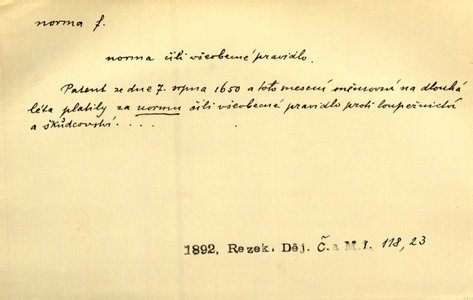 norma f.
norma čili všeobecné pravidlo.
Patent ze dne 7. srpna 1650 a toto usnesení sněmovní na dlouhá
léta platily za normu čili všeobecné pravidlo proti loupežnictví
a škůdcovství. . . .
1892, Rezek. Děj. Č. a M. I. 118, 23